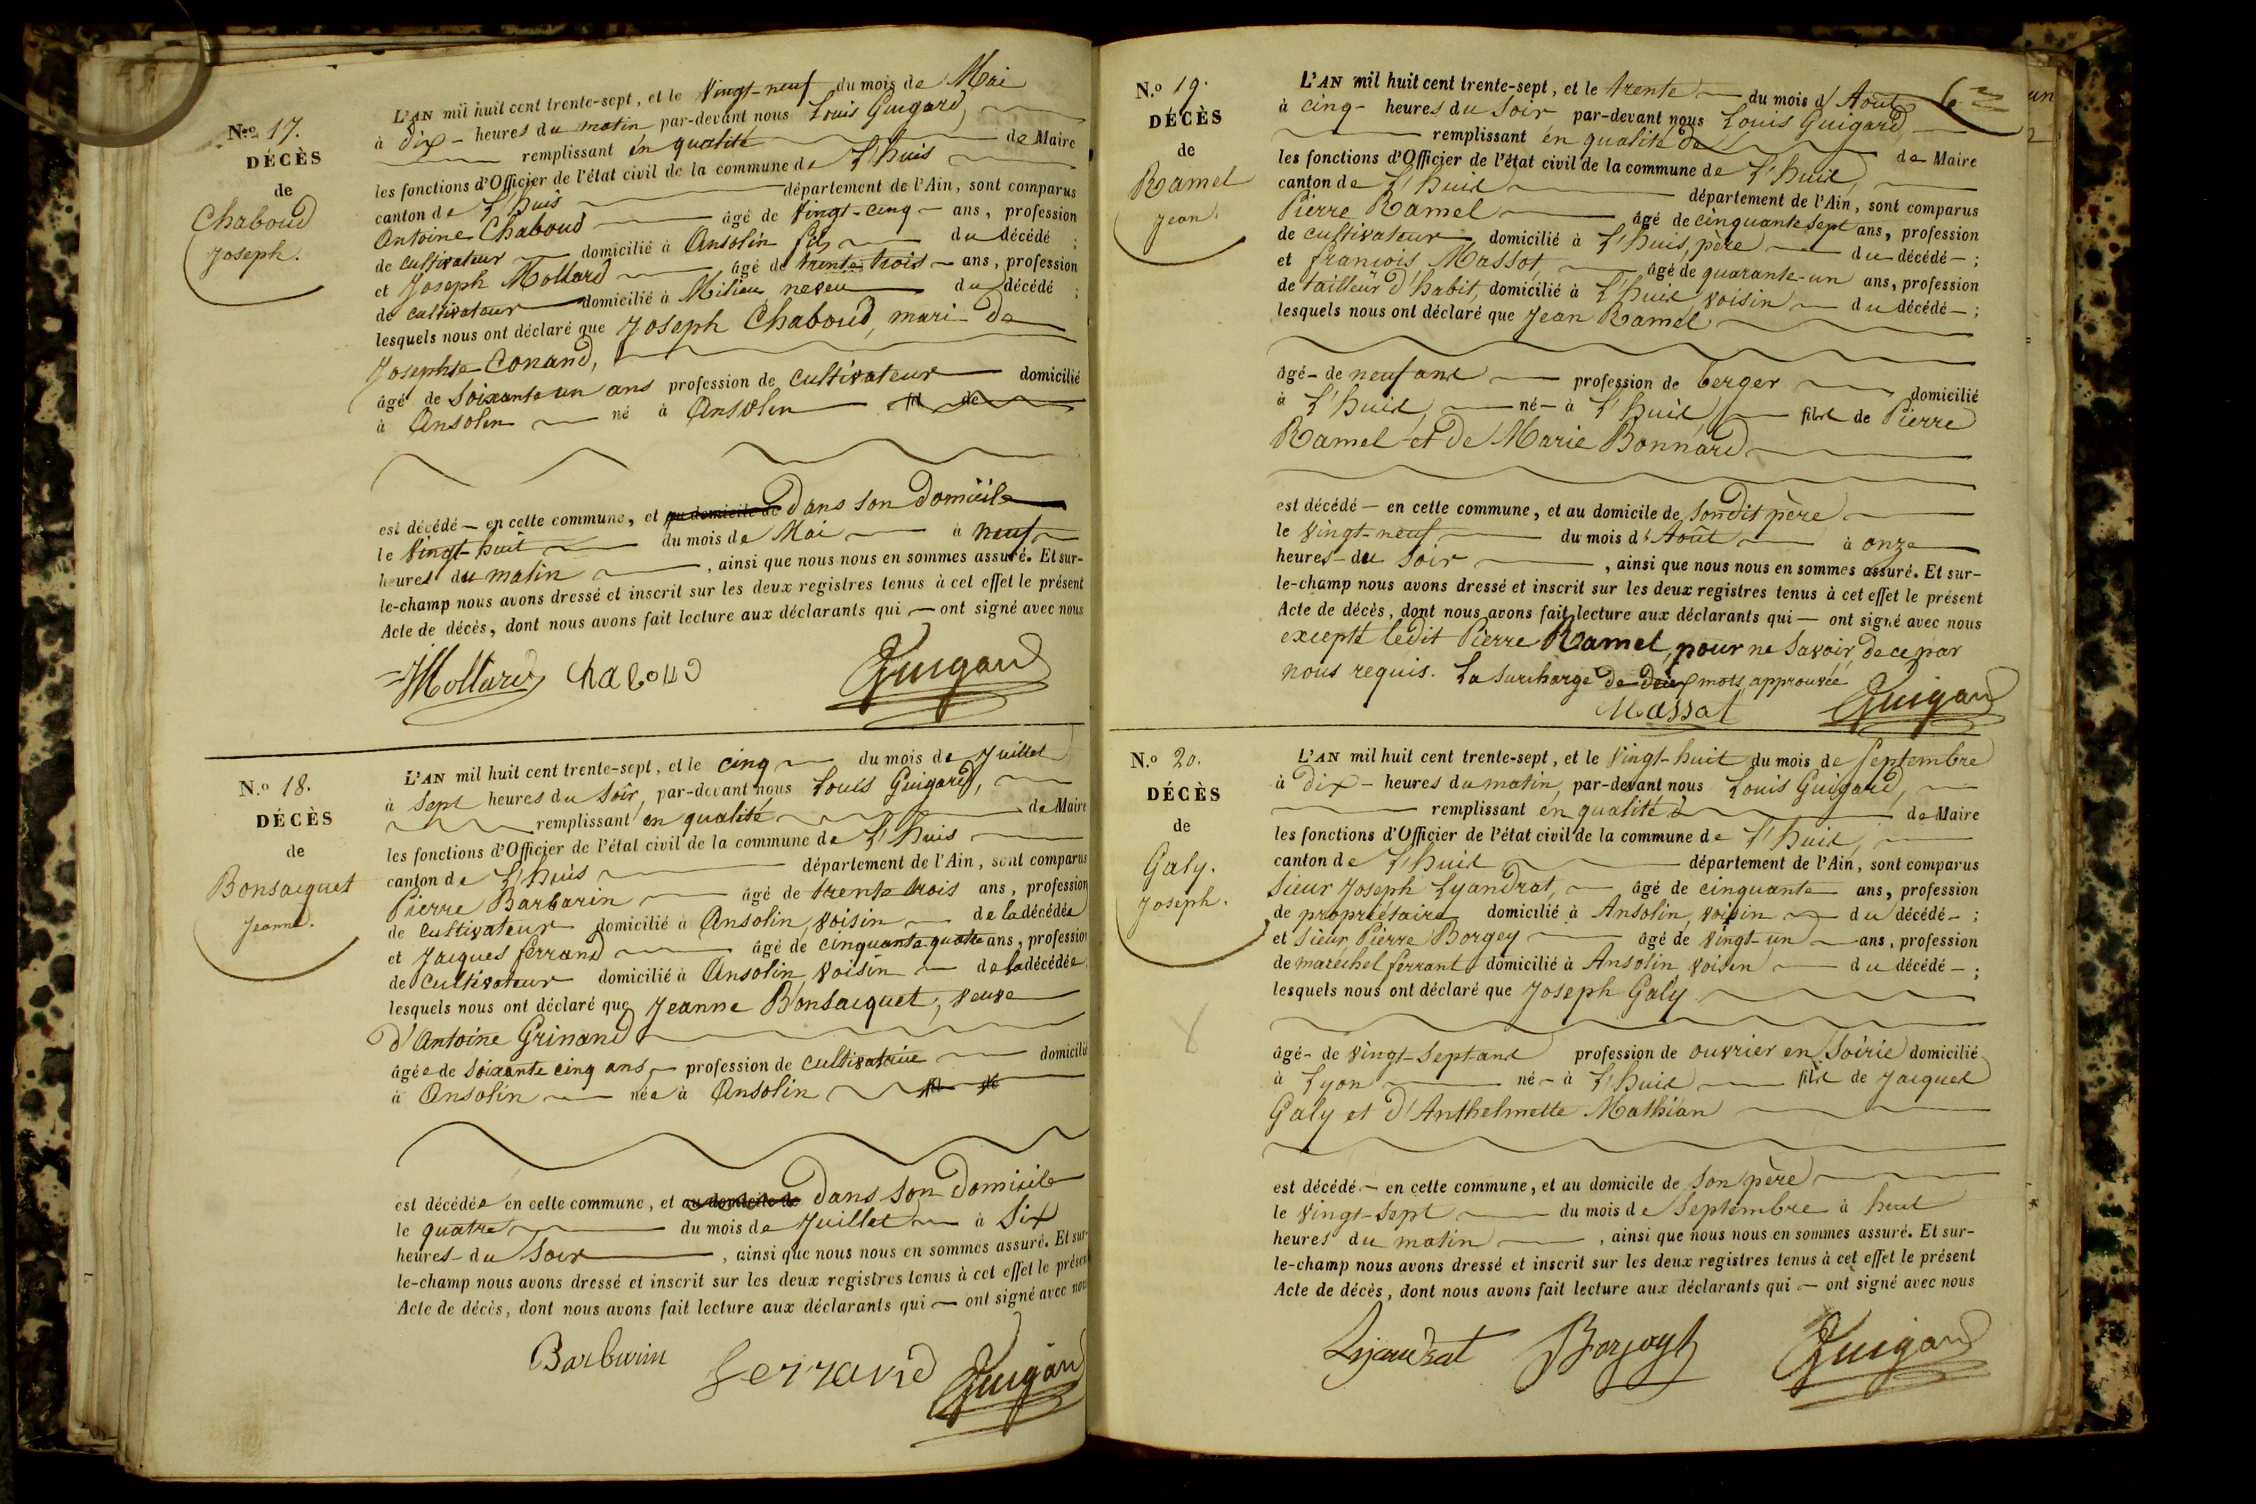 N.o 17.
DÉCÈS
de
Chaboud
Joseph.
L'AN mil huit cent trente-sept, et le vingt-neuf du mois de Mai
à dix heures du matin par-devant nous Louis Guigard,
remplissant en qualité de Maire
les fonctions d'Officier de l'état civil de la commune de L'huis
canton de L'huis département de l'Ain, sont comparus
Antoine Chaboud âgé de vingt-cinq ans, profession
de cultivateur domicilié à Ansolin fils du décédé ;
et Joseph Mollard âgé de trente trois ans, profession
de cultivateur domicilié à Milieu neveu du décédé ;
lesquels nous ont déclaré que Joseph Chaboud, mari de
Josephte Conand,
âgé de soixante un ans profession de cultivateur domicilié
à Ansolin né à Ansolin fil de
est décédé en cette commune, et au domicile de dans son domicile
le vingt-huit du mois de Mai à neuf
heures du matin, ainsi que nous nous en sommes assuré. Et sur-
le-champ nous avons dressé et inscrit sur les deux registres tenus à cet effet le présent
Acte de décès, dont nous avons fait lecture aux déclarants qui ont signé avec nous
JMollard Chaboud Guigard
N.o 18.
DÉCÈS
de
Bonsacquet
Jeanne.
L'AN mil huit cent trente-sept, et le cinq du mois de Juillet
à sept heures du soir, par-devant nous Louis Guigard,
remplissant en qualité de Maire
les fonctions d'Officier de l'état civil de la commune de L'huis
canton de L'huis département de l'Ain, sont comparus
Pierre Barbarin âgé de trente trois ans, profession
de cultivateur domicilié à Ansolin, voisin de la décédée
et Jacques ferrand âgé de cinquante quatre ans, profession
de cultivateur domicilié à Ansolin, voisin de la décédée
lesquels nous ont déclaré que Jeanne Bonsacquet, veuve
d'Antoine Grinand
âgée de soixante cinq ans, profession de cultivatrice domicilié
à Ansolin née à Ansolin fil de
est décédée en cette commune, et au domicile de dans son domicile
le quatre du mois de Juillet à six
heures du soir, ainsi que nous nous en sommes assuré. Et sur-
le-champ nous avons dressé et inscrit sur les deux registres tenus à cet effet le présent
Acte de décès, dont nous avons fait lecture aux déclarants qui ont signé avec nous
Barbarin ferrand Guigard
N.o 19.
DÉCÈS
de
Ramel
Jean.
L'AN mil huit cent trente-sept, et le trente du mois d'Août
à cinq heures du soir par-devant nous Louis Guigard,
remplissant en qualité de de Maire
les fonctions d'Officier de l'état civil de la commune de L'huis,
canton de L'huis département de l'Ain, sont comparus
Pierre Ramel âgé de cinquante sept ans, profession
de cultivateur domicilié à L'huis, père du décédé ;
et francois Massot, âgé de quarante-un ans, profession
de tailleur d'habit, domicilié à L'huis voisin du décédé ;
lesquels nous ont déclaré que Jean Ramel
âgé de neuf ans profession de berger domicilié
à L'huis, né à L'huis, fils de Pierre
Ramel et de Marie Bonnard
est décédé en cette commune, et au domicile de sondit père
le vingt-neuf du mois d'Août à onze
heures du soir, ainsi que nous nous en sommes assuré. Et sur-
le-champ nous avons dressé et inscrit sur les deux registres tenus à cet effet le présent
Acte de décès, dont nous avons fait lecture aux déclarants qui ont signé avec nous
excepté ledit Pierre Ramel, pour ne savoir, de ce par
nous requis. La surcharge de deux mots approuvée
Massot Guigard
N.o 20.
DÉCÈS
de
Galy.
Joseph.
L'AN mil huit cent trente-sept, et le vingt-huit du mois de Septembre
à dix heures du matin, par-devant nous Louis Guigard,
remplissant en qualité de Maire
les fonctions d'Officier de l'état civil de la commune de L'huis,
canton de L'huis département de l'Ain, sont comparus
sieur Joseph Lyandrat, âgé de cinquante ans, profession
de propriétaire domicilié à Ansolin, voisin du décédé ;
et sieur Pierre Borgey âgé de vingt-un ans, profession
de maréchel ferrant domicilié à Ansolin voisin du décédé ;
lesquels nous ont déclaré que Joseph Galy
âgé de vingt-sept ans profession de ouvrier en soirie domicilié
à Lyon né à L'huis fils de Jacques
Galy et d'Anthelmette Mathian
est décédé en cette commune, et au domicile de son père
le vingt-sept du mois de Septembre à huit
heures du matin, ainsi que nous nous en sommes assuré. Et sur-
le-champ nous avons dressé et inscrit sur les deux registres tenus à cet effet le présent
Acte de décès, dont nous avons fait lecture aux déclarants qui ont signé avec nous
Lyandrat Guigard